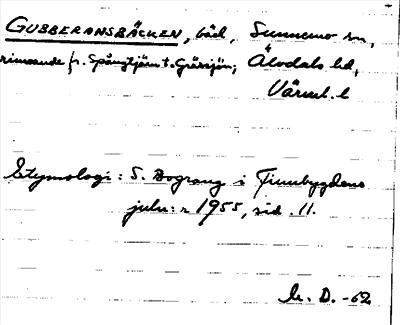 GUBBERANSBÄCKEN, bäck, Sunnemo sn,
rinnande fr. Spångtjärn t. Gräsjön; Älvdals hd,
Värml. l
Etymologi: S. Bograng i Finnbygdens
julnr 1955, sid. 11.
D. -62